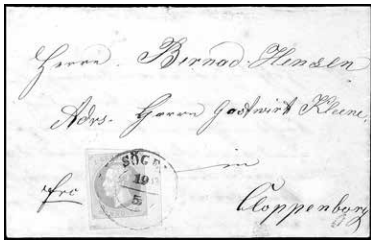 Herrn Bernad Hensen
Adrs. Herrn Gastwirt Kleene
in
SÖGEL
19
5
frco
Cloppenburg